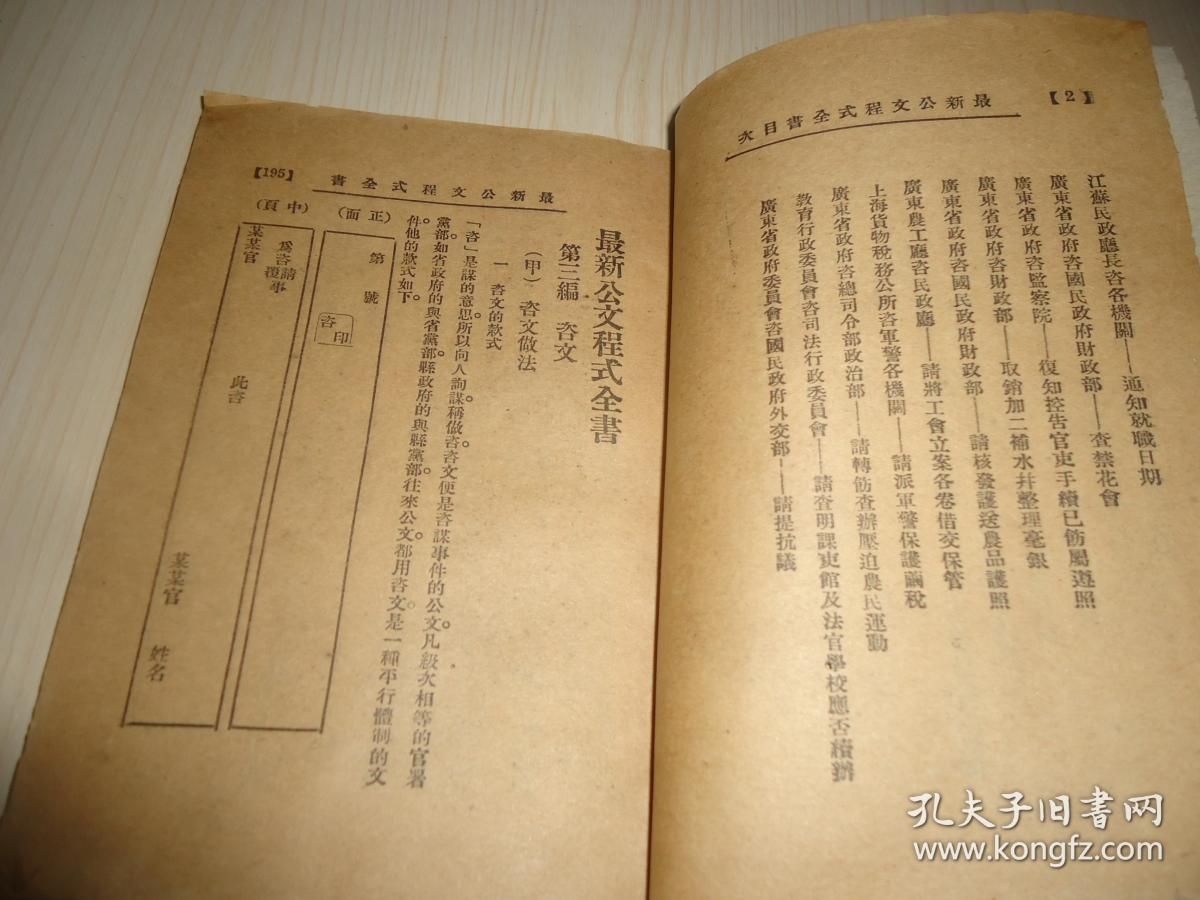 【2】
最新公文程式全書目次
江蘇民政廳長咨各機關——通知就職日期
廣東省政府咨國民政府財政部——查禁花會
廣東省政府咨監察院——復知控告官吏手續已飭屬遵照
廣東省政府咨財政部——取銷加二補水幷整理毫銀
廣東省政府咨國民政府財政部——請核發護送農品護照
廣東農工廳咨民政廳——請將工會立案各卷借交保管
上海貨物稅務公所咨軍警各機關——請派軍警保護繭稅
廣東省政府咨總司令部政治部——請轉飭查辦壓迫農民運動
教育行政委員會咨司法行政委員會——請查明課吏館及法官學校應否續辦
廣東省政府委員會咨國民政府外交部——請提抗議
最新公文程式全書
【195】
最新公文程式全書
第三編　咨文
（甲）　咨文做法
一　咨文的款式
「咨」是謀的意思。所以向人詢謀。稱做咨。咨文便是咨謀事件的公文。凡級次相等的官署
黨部。如省政府的與省黨部。縣政府的與縣黨部。往來公文。都用咨文。是一種平行體制的文
件。他的款式如下。
（正面）
第　號
咨　印
（中頁）
為咨請復事
某某官
此咨
某某官　姓名
孔夫子旧书网
www.kongfz.com